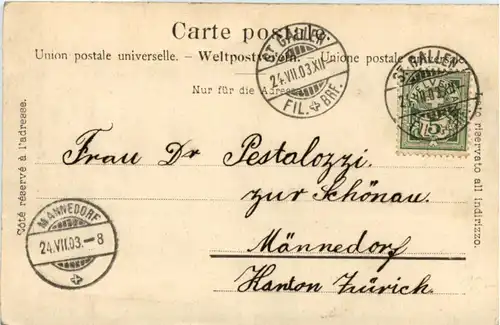 Carte postale.
Union postale universelle. – Weltpostverein. – Unione postale universale.
Nur für die Adresse.
Côté réservé à l'adresse.
Lato riservato all indirizzo.
ST. GALLEN
24.VII.03.XII
FIL. BRF.
ST. GALLEN
Frau Dr Pestalozzi.
zur Schönau.
Männedorf
Kanton Zürich.
MÄNNEDORF
24.VII.03.–8